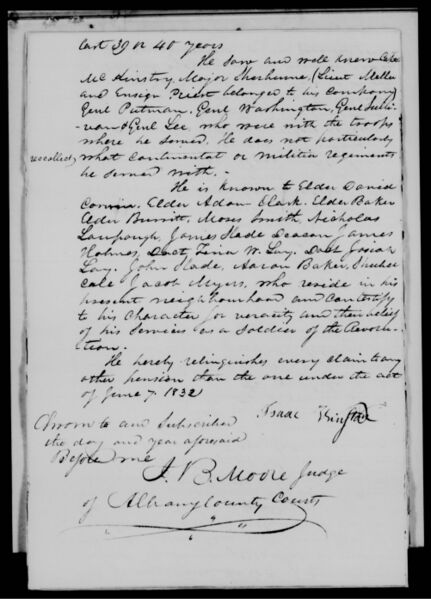 last 39 or 40 years
He saw and well knew Capt
McKinstry, Major Sherburne, (Lieut Mellen
and Ensign Priest belonged to his company
Genl Putman, Genl Washington, Genl Sulli-
-van & Genl Lee who were with the troops
where he served. He does not particularly
recollect what continental or militia regiments
he served with. -
He is known to Elder David
Elder Adam Clark, Elder Baker
Elder Burritt, Moses Smith, Nicholas
James Slade Deacon James
Holmes, Doct W. Lay, Doct Josiah
Lay, John Slade, Aaron Baker,
Jacob Myers, who reside in his
present neighbourhood and can testify
to his character for veracity and their belief
of his services as a soldier of the Revolu-
-tion.
He hereby relinquishes every claim to any
other pension than the one under the act
of June 7. 1832
Isaac
Sworn to and Subscribed
the day and year aforesaid
Before me
J. B. Moore Judge
of Albany County Courts